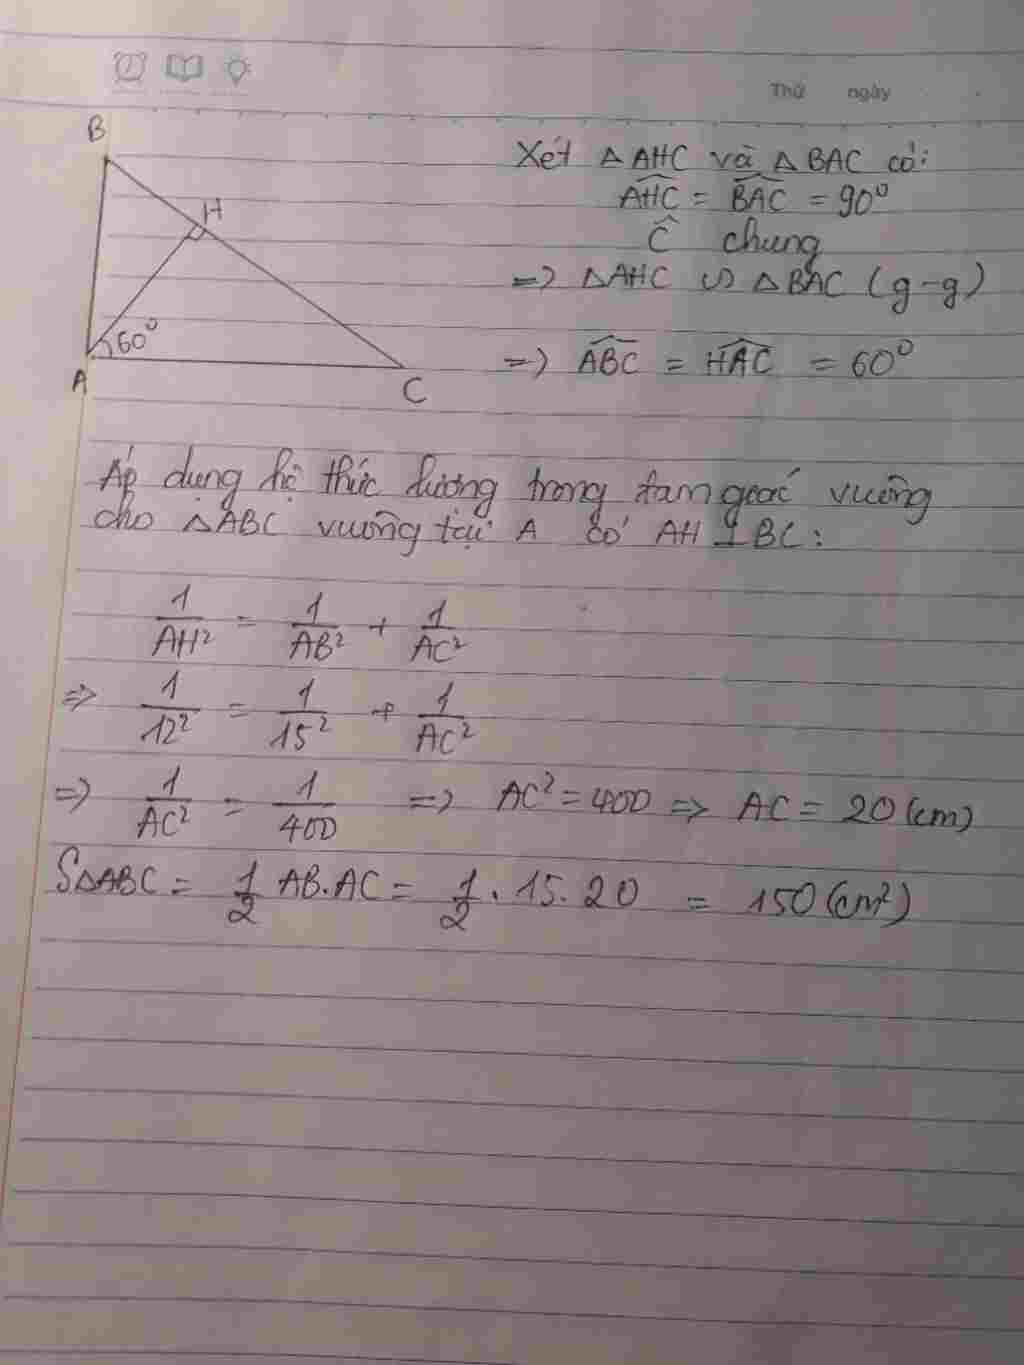 Thứ ngày
B
H
60°
A
C
Xét △AHC và △BAC có:
AHC = BAC = 90°
C chung
=> △AHC ∽ △BAC (g-g)
=> ABC = HAC = 60°
Áp dụng hệ thức lương trong tam goác vuông
cho △ABC vuông tại A có AH ⊥ BC:
1/AH² = 1/AB² + 1/AC²
=> 1/12² = 1/15² + 1/AC²
=> 1/AC² = 1/400 => AC² = 400 => AC = 20 (cm)
S△ABC = 1/2 AB.AC = 1/2 . 15.20 = 150 (cm²)